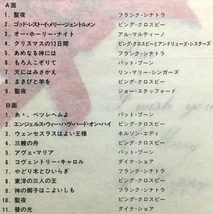 A面
1. 聖夜 フランク・シナトラ
2. ゴッド・レスト・イ・メリー・ジェントルメン ビング・クロスビー
3. オー・ホーリー・ナイト アル・マルティーノ
4. クリスマスの12日間 ビング・クロスビーとアンドリュース・シスターズ
5. あめなる神には フランク・シナトラ
6. もろ人こぞりて パット・ブーン
7. 天にはみさかえ リン・マリー・シンガーズ
8. まきびと羊を ビング・クロスビー
9. 聖夜 ジョー・スタッフォード
B面
1. あゝ、ベツレヘムよ パット・ブーン
2. エンジェルス・ウィー・ハヴ・ハード・オン・ハイ ビング・クロスビー
3. ウェンセスラスはよい王様 ネルソン・エディ
4. 三艘の舟 ビング・クロスビー
5. アヴェ・マリア パット・ブーン
6. コヴェントリー・キャロル ダイナ・ショア
7. やどりりとひいらぎ フランク・シナトラ
8. 東洋の三人の王 ビング・クロスビー
9. 神の御子はこよいしも フランク・シナトラ
10. 聖夜 ビング・クロスビー
11. 螢の光 ダイナ・ショア